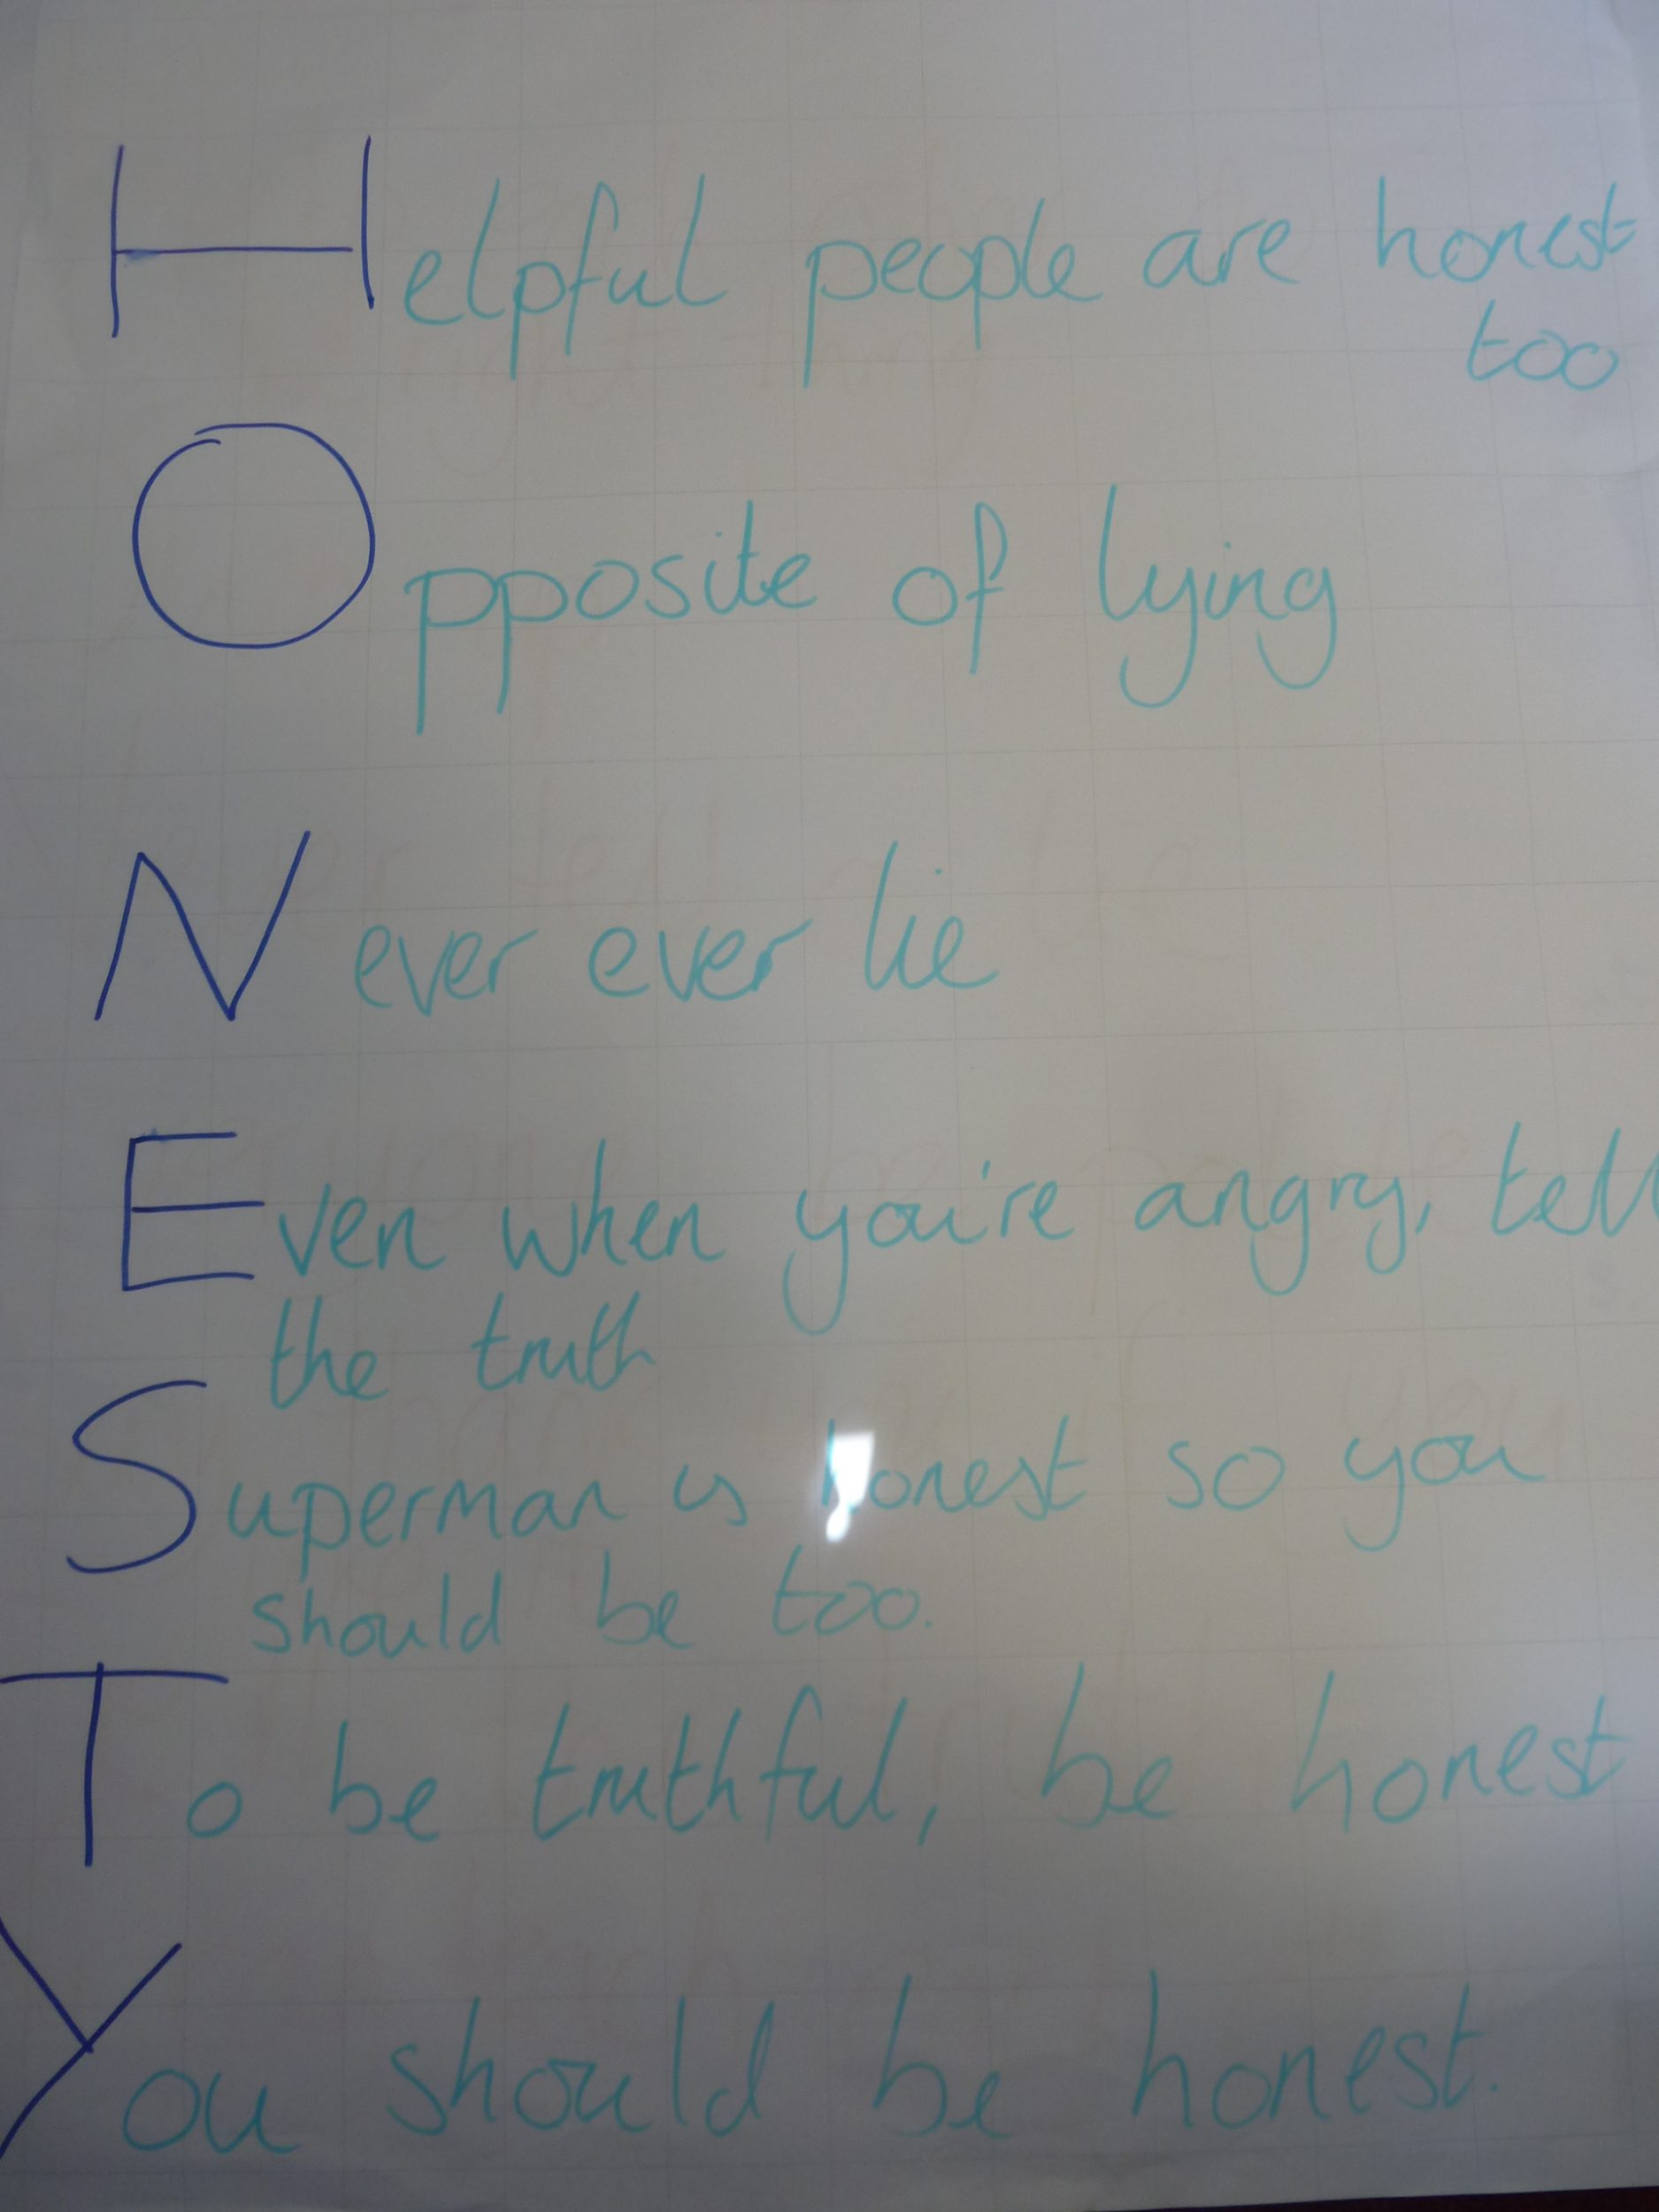 Helpful people are honest
too
Opposite of lying
Never ever lie
Even when you're angry, tell
the truth
Superman is honest so you
should be too.
To be truthful, be honest
You should be honest.